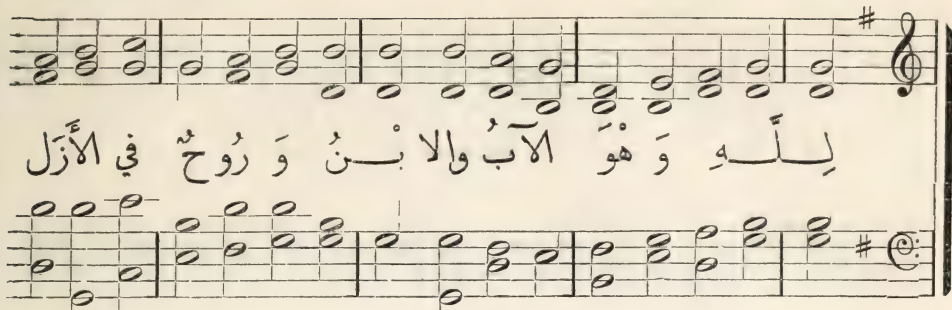 لِـلَّـهِ وَ هْوَ الآبُ والا بْـنُ وَ رُوحٌ في الأَزَل